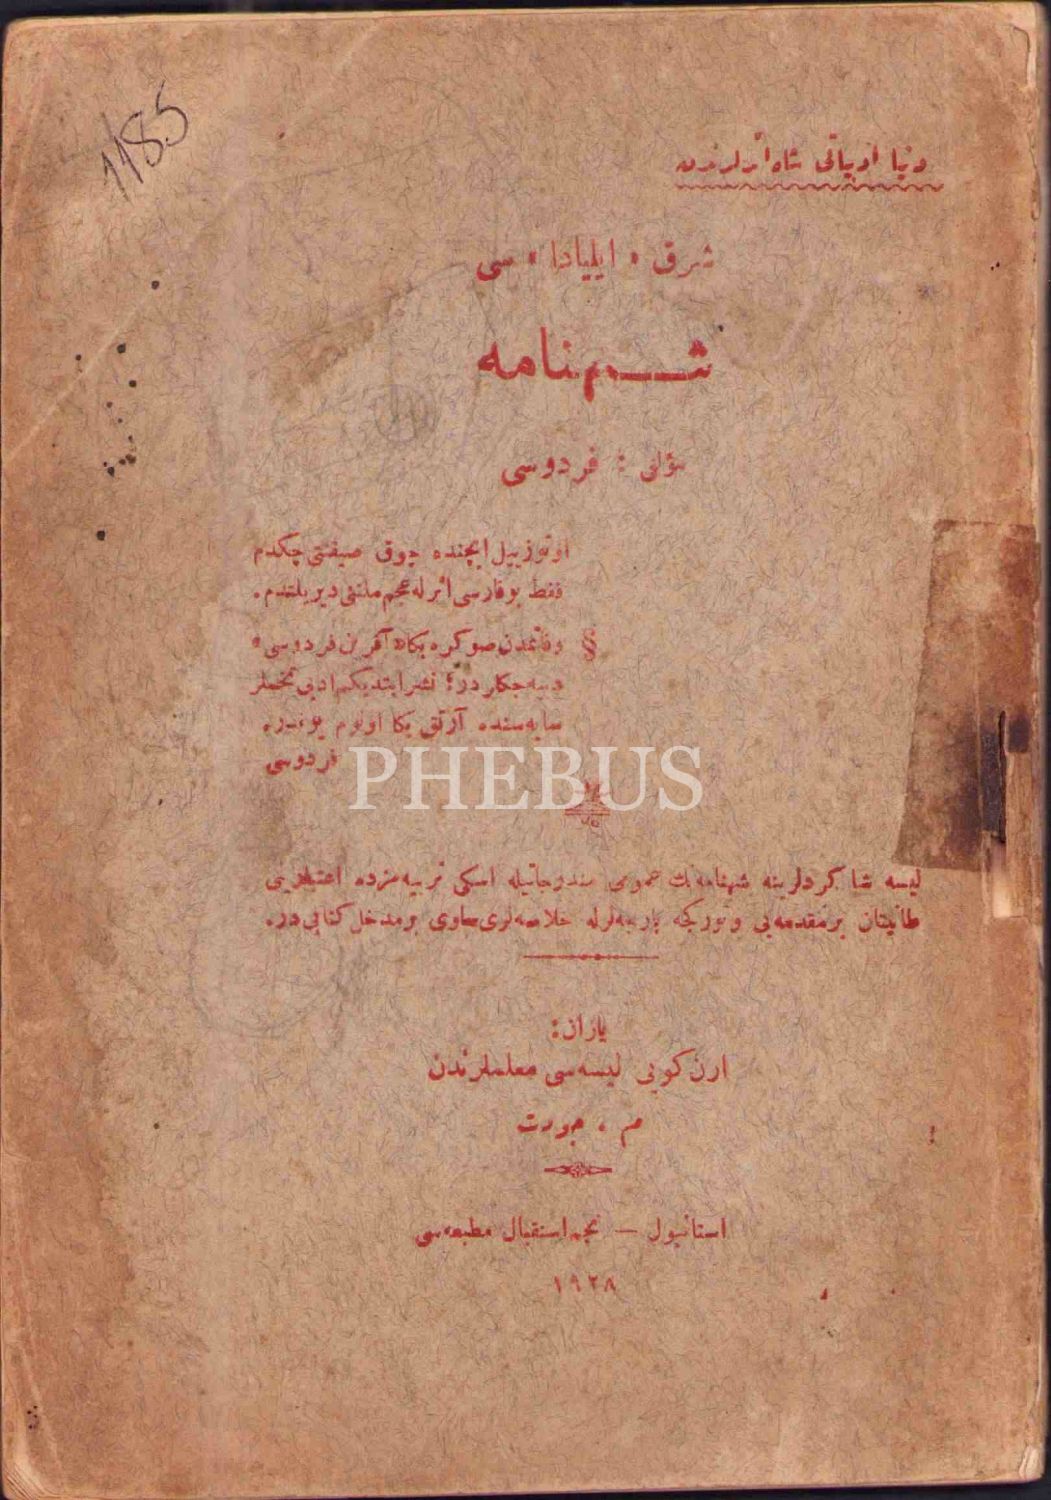 1185
دنیا ادبیاتی شاه اثرلرندن
شرق « ایلیادا » سی
شهنامه
مؤلفی : فردوسی
اوتوز ییل ایچنده چوق صیقنتی چکدم
فقط بو فارسی اثرله عجم ملتنی دیریلتدم.
§ وفاتمدن صوکره بکا «آفرین فردوسی»
دییه جکلردر؛ نشر ایتدیکم ادبی تخملر
سایه سنده آرتق بکا اولوم یوقدر.
فردوسی
PHEBUS
لیسه شاکردلرینه شهنامه نك عمومی مندرجاتیله اسکی تربیه مزده اعتبارینی
طانیتان بر مقدمه یی و تورکجه پارچه لرله خلاصه لری حاوی بر مدخل کتابی در.
یازان:
ارن کویی لیسه سی معلملرندن
م . جودت
استانبول — نجم استقبال مطبعه سی
١٩٢٨